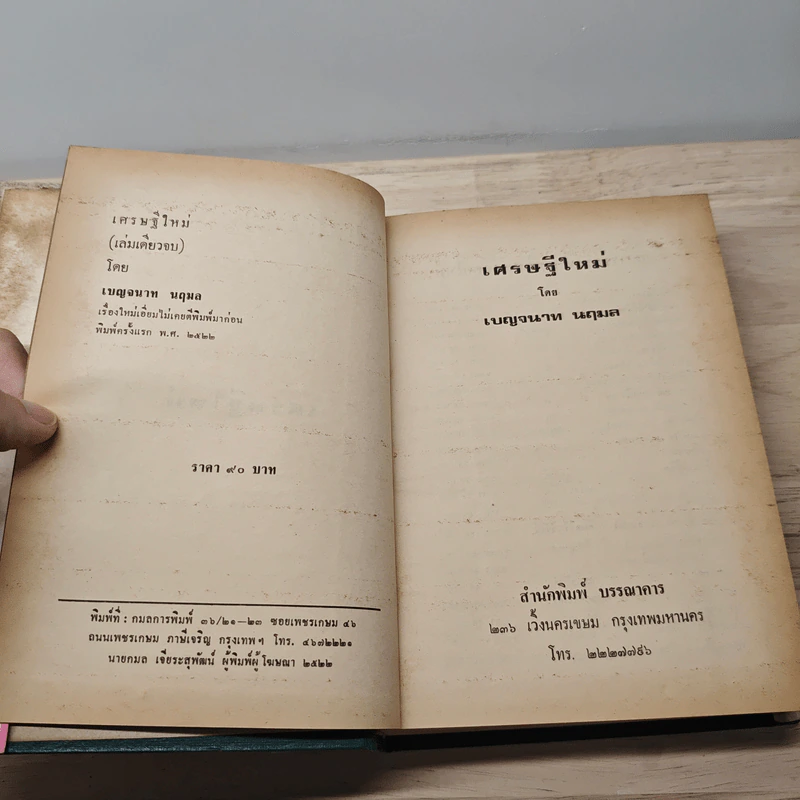 เศรษฐีใหม่
(เล่มเดียวจบ)
โดย
เบญจนาท นฤมล
เรื่องใหม่เอี่ยมไม่เคยตีพิมพ์มาก่อน
พิมพ์ครั้งแรก พ.ศ. ๒๕๒๒
ราคา ๙๐ บาท
พิมพ์ที่ : กมลการพิมพ์ ๓๖/๒๑—๒๓ ซอยเพชรเกษม ๔๖
ถนนเพชรเกษม ภาษีเจริญ กรุงเทพฯ โทร. ๔๖๗๒๒๒๑
นายกมล เจียระสุพัฒน์ ผู้พิมพ์ผู้โฆษณา ๒๕๒๒
เศรษฐีใหม่
โดย
เบญจนาท นฤมล
สำนักพิมพ์ บรรณาคาร
๒๓๖ เวิ้งนครเขษม กรุงเทพมหานคร
โทร. ๒๒๒๗๗๙๖